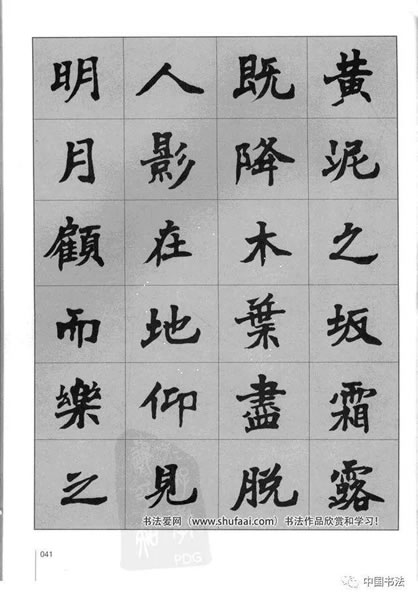 黄泥之坂霜露
既降木葉盡脱
人影在地仰見
明月顧而樂之
书法爱网（www.shufaai.com）书法作品欣赏和学习！
041
PDG
中国书法